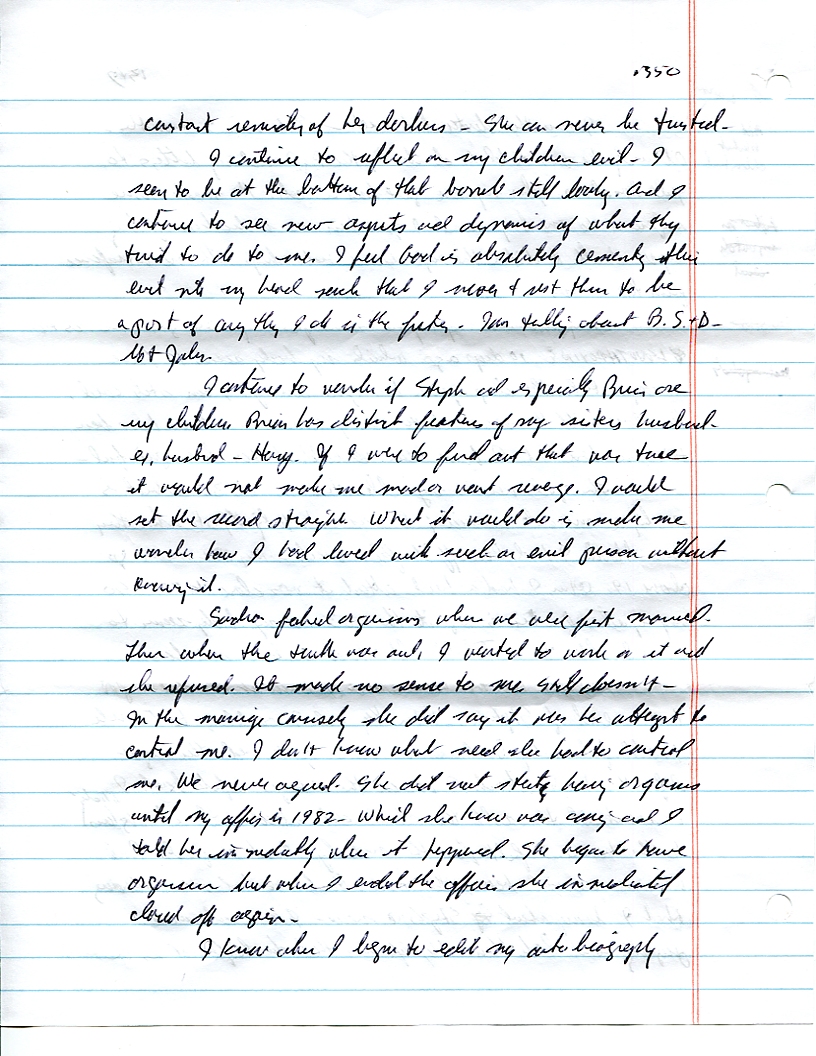 .350
constant reminder of her darkness - She can never be trusted -
I continue to reflect on my children evil - I
seem to be at the bottom of that barrel still lately. And I
continue to see new aspects and dynamics of what they
tried to do to me. I feel God is absolutely cementing this
evil into my head such that I never trust them to be
a part of any thing I do in the future. I am talking about B. S. + D -
Not John.
I continue to wonder if Steph and especially Brian are
my children. Brian has distinct features of my sisters husband -
ex. husband - Harry. If I were to find out that was true
it would not make me mad or want revenge. I would
set the record straight. What it would do is make me
wonder how I had lived with such an evil person without
knowing it.
faked orgasms when we were first married.
Then when the truth was out, I wanted to work on it and
she refused. It made no sense to me. Still doesn't -
In the marriage counseling she did say it was her attempt to
control me. I don't know what need she had to control
me. We never argued. She did not start having orgasms
until my affair in 1982 - Which she knew was coming and I
told her immediately when it happened. She began to have
orgasms but when I ended the affair she immediately
closed off again -
I know when I began to edit my autobiography